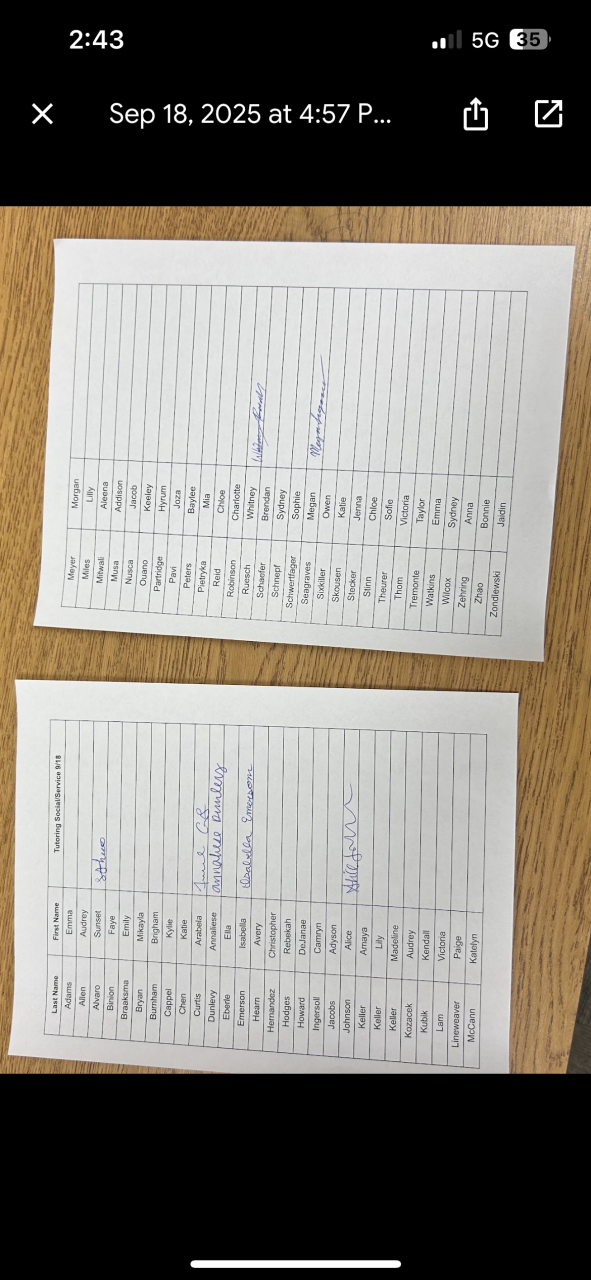 2:43
5G 35
Sep 18, 2025 at 4:57 P...
Last Name First Name Tutoring Social/Service 9/18
Adams Emma
Allen Audrey
Alvaro Sunset
Binion Faye
Braaksma Emily
Bryan Mikayla
Burnham Brigham
Cappel Kylie
Chen Katie
Curtis Arabela
Dunlevy Annaliese Annaliese Dunlevy
Eberle Ella
Emerson Isabella Isabella Emerson
Hearn Avery
Hernandez Christopher
Hodges Rebekah
Howard DeJanae
Ingersoll Camryn
Jacobs Adyson
Johnson Alice
Keller Amaya
Keller Lily
Keller Madeline
Kozacek Audrey
Kubik Kendall
Lam Victoria
Lineweaver Paige
McCann Katelyn
Meyer Morgan
Miles Lilly
Mitwali Aleena
Musa Addison
Nusca Jacob
Ouano Keeley
Partridge Hyrum
Pavi Joza
Peters Baylee
Pietryka Mia
Reid Chloe
Robinson Charlotte
Ruesch Whitney
Schaefer Brendan
Schnepf Sydney
Schwertfager Sophie
Seagraves Megan
Sixkiller Owen
Skousen Katie
Stecker Jenna
Stinn Chloe
Theurer Sofie
Thom Victoria
Tremonte Taylor
Watkins Emma
Wilcox Sydney
Zehring Anna
Zhao Bonnie
Zondlewski Jaidin